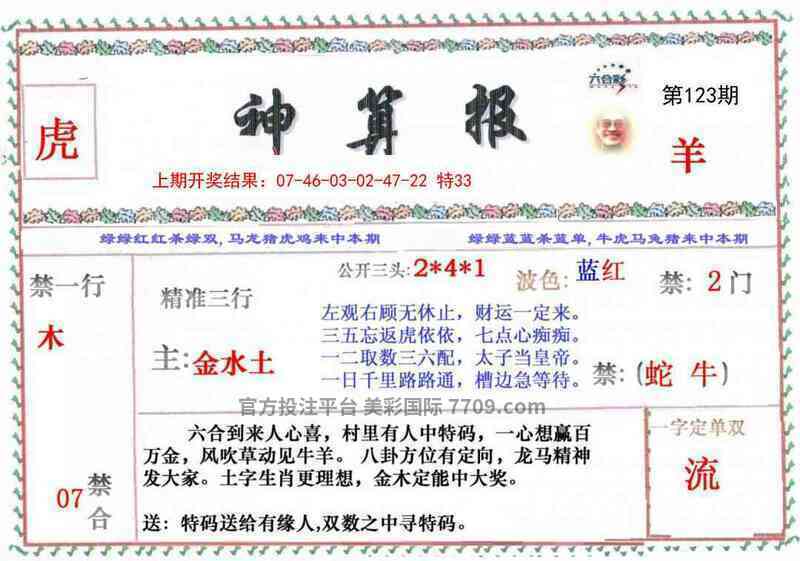 神算报
六合彩
第123期
虎
羊
上期开奖结果：07-46-03-02-47-22 特33
绿绿红红杀绿双,马龙猪虎鸡来中本期
绿绿蓝蓝杀蓝单,牛虎马兔猪来中本期
禁一行
木
07
禁合
精准三行
主:金水土
公开三头:2*4*1
波色:蓝红
禁:2门
左观右顾无休止，财运一定来。
三五忘返虎依依，七点心痴痴。
一二取数三六配，太子当皇帝。
一日千里路路通，槽边急等待。
禁:(蛇 牛)
官方投注平台 美彩国际 7709.com
六合到来人心喜，村里有人中特码，一心想赢百
万金，风吹草动见牛羊。 八卦方位有定向，龙马精神
发大家。土字生肖更理想，金木定能中大奖。
送：特码送给有缘人,双数之中寻特码。
一字定单双
流